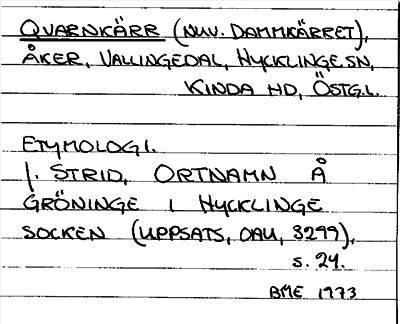 QVARNKÄRR (NUV. DAMMKÄRRET),
ÅKER, VALLINGEDAL, HYCKLINGE SN,
KINDA HD, ÖSTG.L.
ETYMOLOGI.
J. STRID, ORTNAMN Å
GRÖNINGE I HYCKLINGE
SOCKEN (UPPSATS, OAU, 3299),
S. 24.
BME 1973